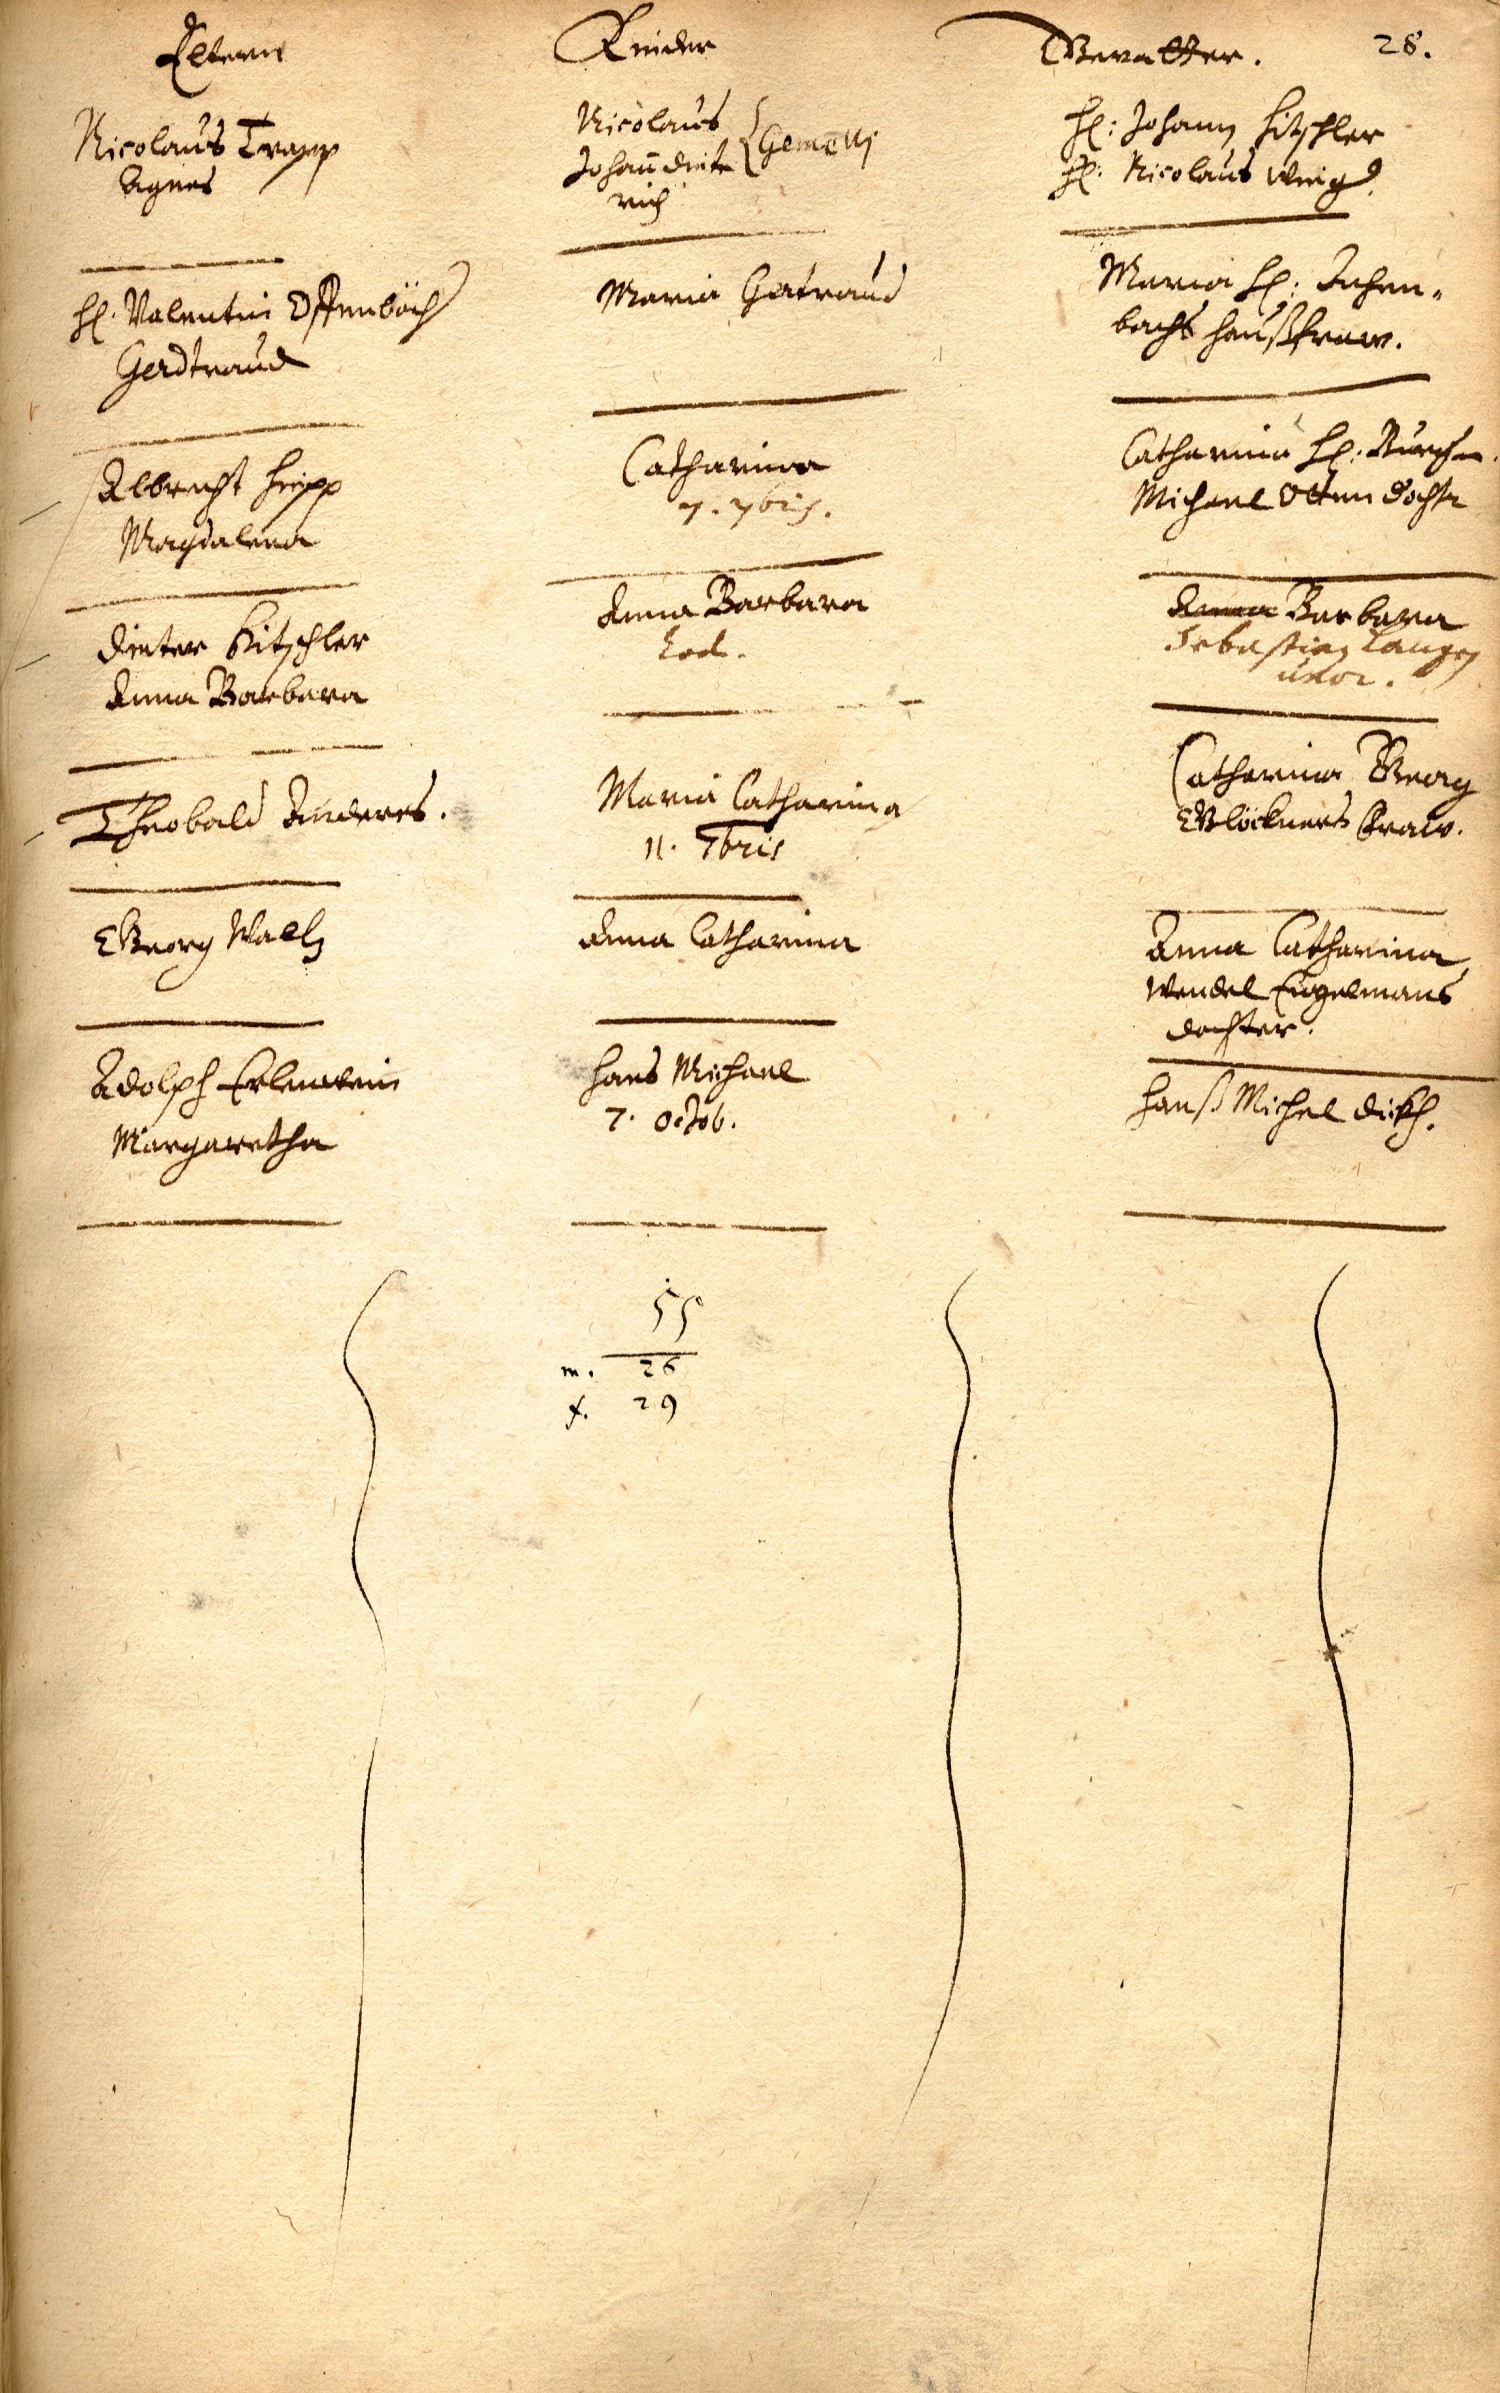 Eltern Kinder Gevatter. 28.
Nicolaus Trapp
Agnes
Nicolaus
Johan̄ Diete
rich
Gemelli
H: Johann Hitschler
H: Nicolaus Weig
H. Valentin Offenbäch
Gerdtraud
Maria Gertraud
Maria H: Ichen-
bachs haußfraw.
Albrecht Hipp
Magdalena
Catharina
7. 7bris.
Catharina H:
Michael Otten dochter
Dieter Hitschler
Anna Barbara
Anna Barbara
Eod.
Anna Barbara
Sebastian Langen
uxor.
Theobald Anderes.
Maria Catharina
11. 7bris
Catharina Georg
Glöckners fraw.
Georg Waltz
Anna Catharina
Anna Catharina
Wendel Engelmans
dochter.
Adolph Erlenwein
Margaretha
Hans Michael
7. Octob.
Hanß Michel Dick.
55
m. 26
f. 29